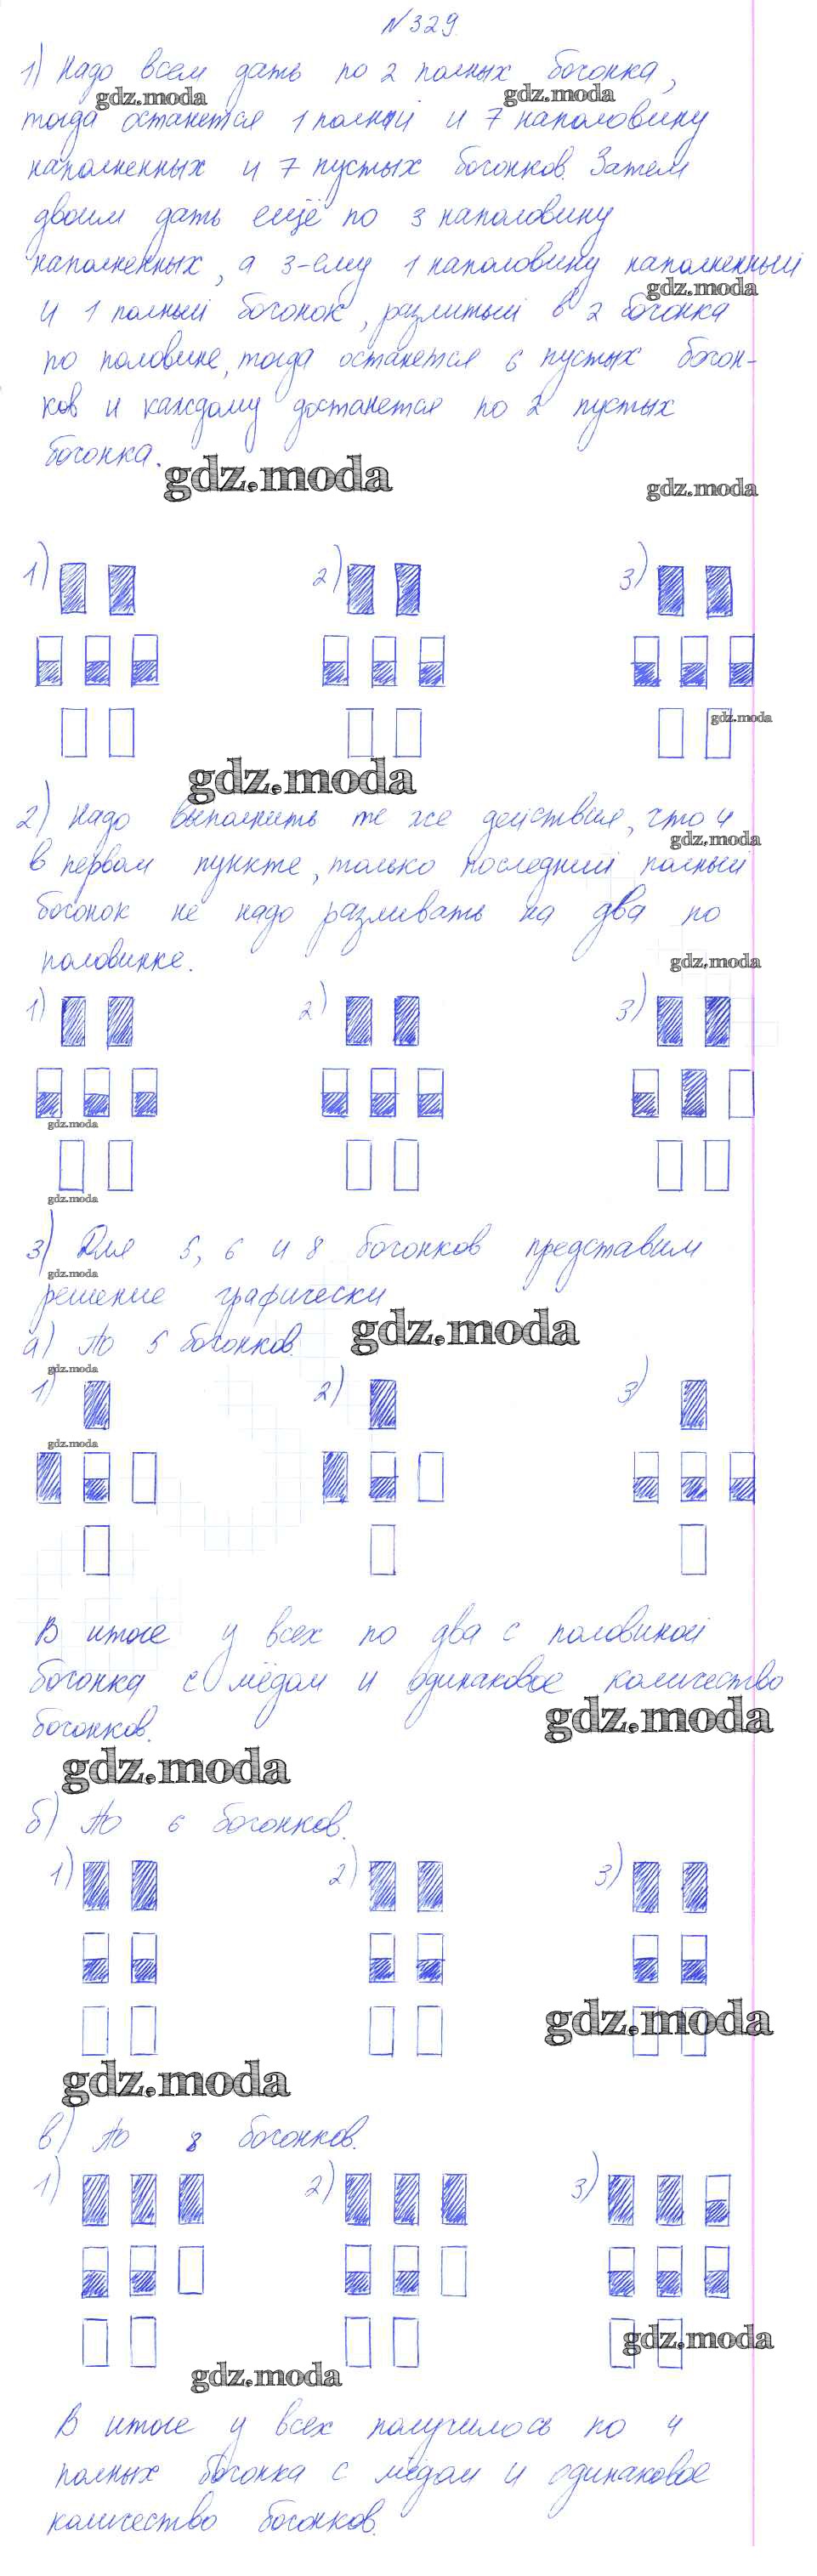 №329
1) Надо всем дать по 2 полных бочонка,
gdz.moda gdz.moda
тогда останется 1 полный и 7 наполовину
наполненных и 7 пустых бочонков. Затем
двоим дать ещё по 3 наполовину
наполненных, а 3-ему 1 наполовину наполненный
gdz.moda
и 1 полный бочонок, разлитый в 2 бочонка
по половине, тогда останется 6 пустых бочон-
ков и каждому достанется по 2 пустых
бочонка.
gdz.moda gdz.moda
1) 2) 3)
gdz.moda
gdz.moda
2) Надо выполнить те же действия, что и
gdz.moda
в первом пункте, только последний полный
бочонок не надо разливать на два по
половинке.
gdz.moda
1) 2) 3)
gdz.moda
gdz.moda
3) Для 5, 6 и 8 бочонков представим
gdz.moda
решение графически
gdz.moda
а) По 5 бочонков.
gdz.moda
1) 2) 3)
gdz.moda
В итоге у всех по два с половиной
бочонка с мёдом и одинаковое количество
бочонков.
gdz.moda
gdz.moda
б) По 6 бочонков.
1) 2) 3)
gdz.moda
gdz.moda
в) По 8 бочонков.
1) 2) 3)
gdz.moda
gdz.moda
В итоге у всех получилось по 4
полных бочонка с мёдом и одинаковое
количество бочонков.